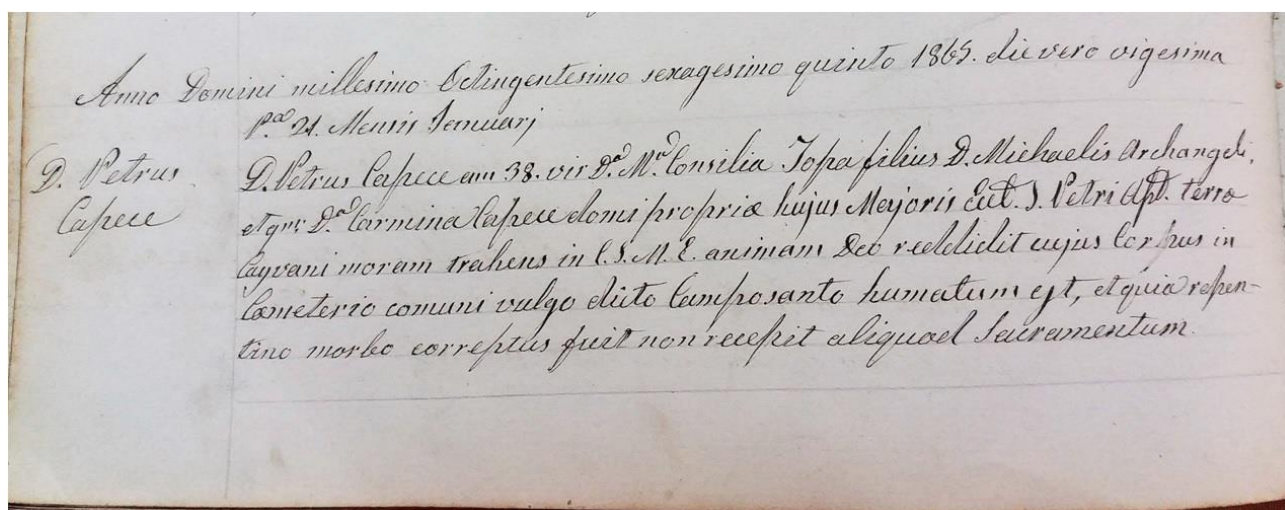 Anno Domini millesimo Octingentesimo sexagesimo quinto 1865. die vero vigesima
p.ª 21. Mensis Januarj
D. Petrus Capece
D. Petrus Capece ann 38. vir D.ª M.ª Consilia Topa filius D. Michaelis Archangeli,
et D.ª Carmina Capece domi propriæ hujus Majoris Eccl. S. Petri Apt. terræ
Cayvani moram trahens in C. S. M. E. animam Deo reddidit cujus Corpus in
Cœmeterio comuni vulgo dicto Camposanto humatum est, et quia repen-
tino morbo correptus fuit non recepit aliquod Sacramentum.